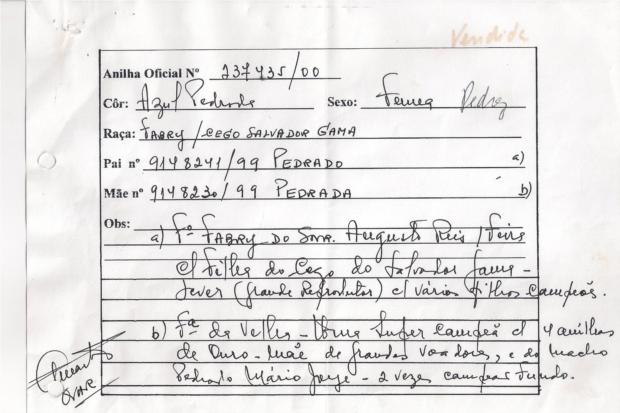 Vendida
Anilha Oficial Nº 237435/00
Côr: Azul Pedrada Sexo: Femea Pedroz
Raça: FABRY / CEGO SALVADOR GAMA
Pai nº 9148241/99 PEDRADO a)
Mãe nº 9148230/99 PEDRADA b)
Obs:
a) Fº FABRY DO SNR. Augusto Reis / Feira
c/ Filha do Cego do Salvador Gama -
(Grande Reprodutor) c/ vários filhos campeãs.
b) Fª da Velha - Uma Super Campeã c/ 4 anilhas
de Ouro - Mãe de grandes voadores, e do macho
Pedrado Mário Jorge - 2 vezes campeão Fundo.